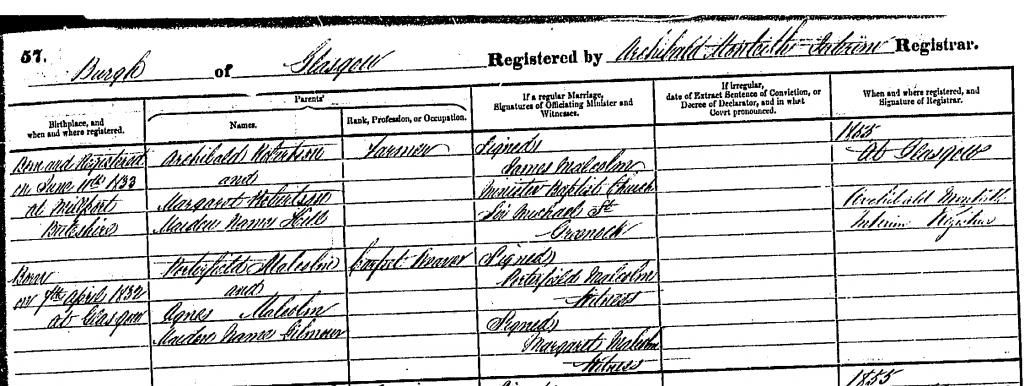 57.
Burgh of Glasgow Registered by Archibald Monteith Interim Registrar.
Birthplace, and
when and where registered.
Parents'
Names.
Rank, Profession, or Occupation.
If a regular Marriage,
Signatures of Officiating Minister and
Witnesses.
If irregular,
date of Extract Sentence of Conviction, or
Decree of Declarator, and in what
Court pronounced.
When and where registered, and
Signature of Registrar.
Born and Registered
on June 11th 1833
at Millport
Buteshire
Archibald Robertson
and
Margaret Robertson
Maiden Name Hill
Farmer
Signed
James Malcolm
Minister Baptist Church
Sir Michael St
Greenock
1855
at Glasgow
Archibald Monteith
Interim Registrar
Born
on 9th April 1832
at Glasgow
Porterfield Malcolm
and
Agnes Malcolm
Maiden Name Gilmour
Carpet Weaver
Signed
Porterfield Malcolm
Witness
Signed
Margaret Malcolm
Witness
1855